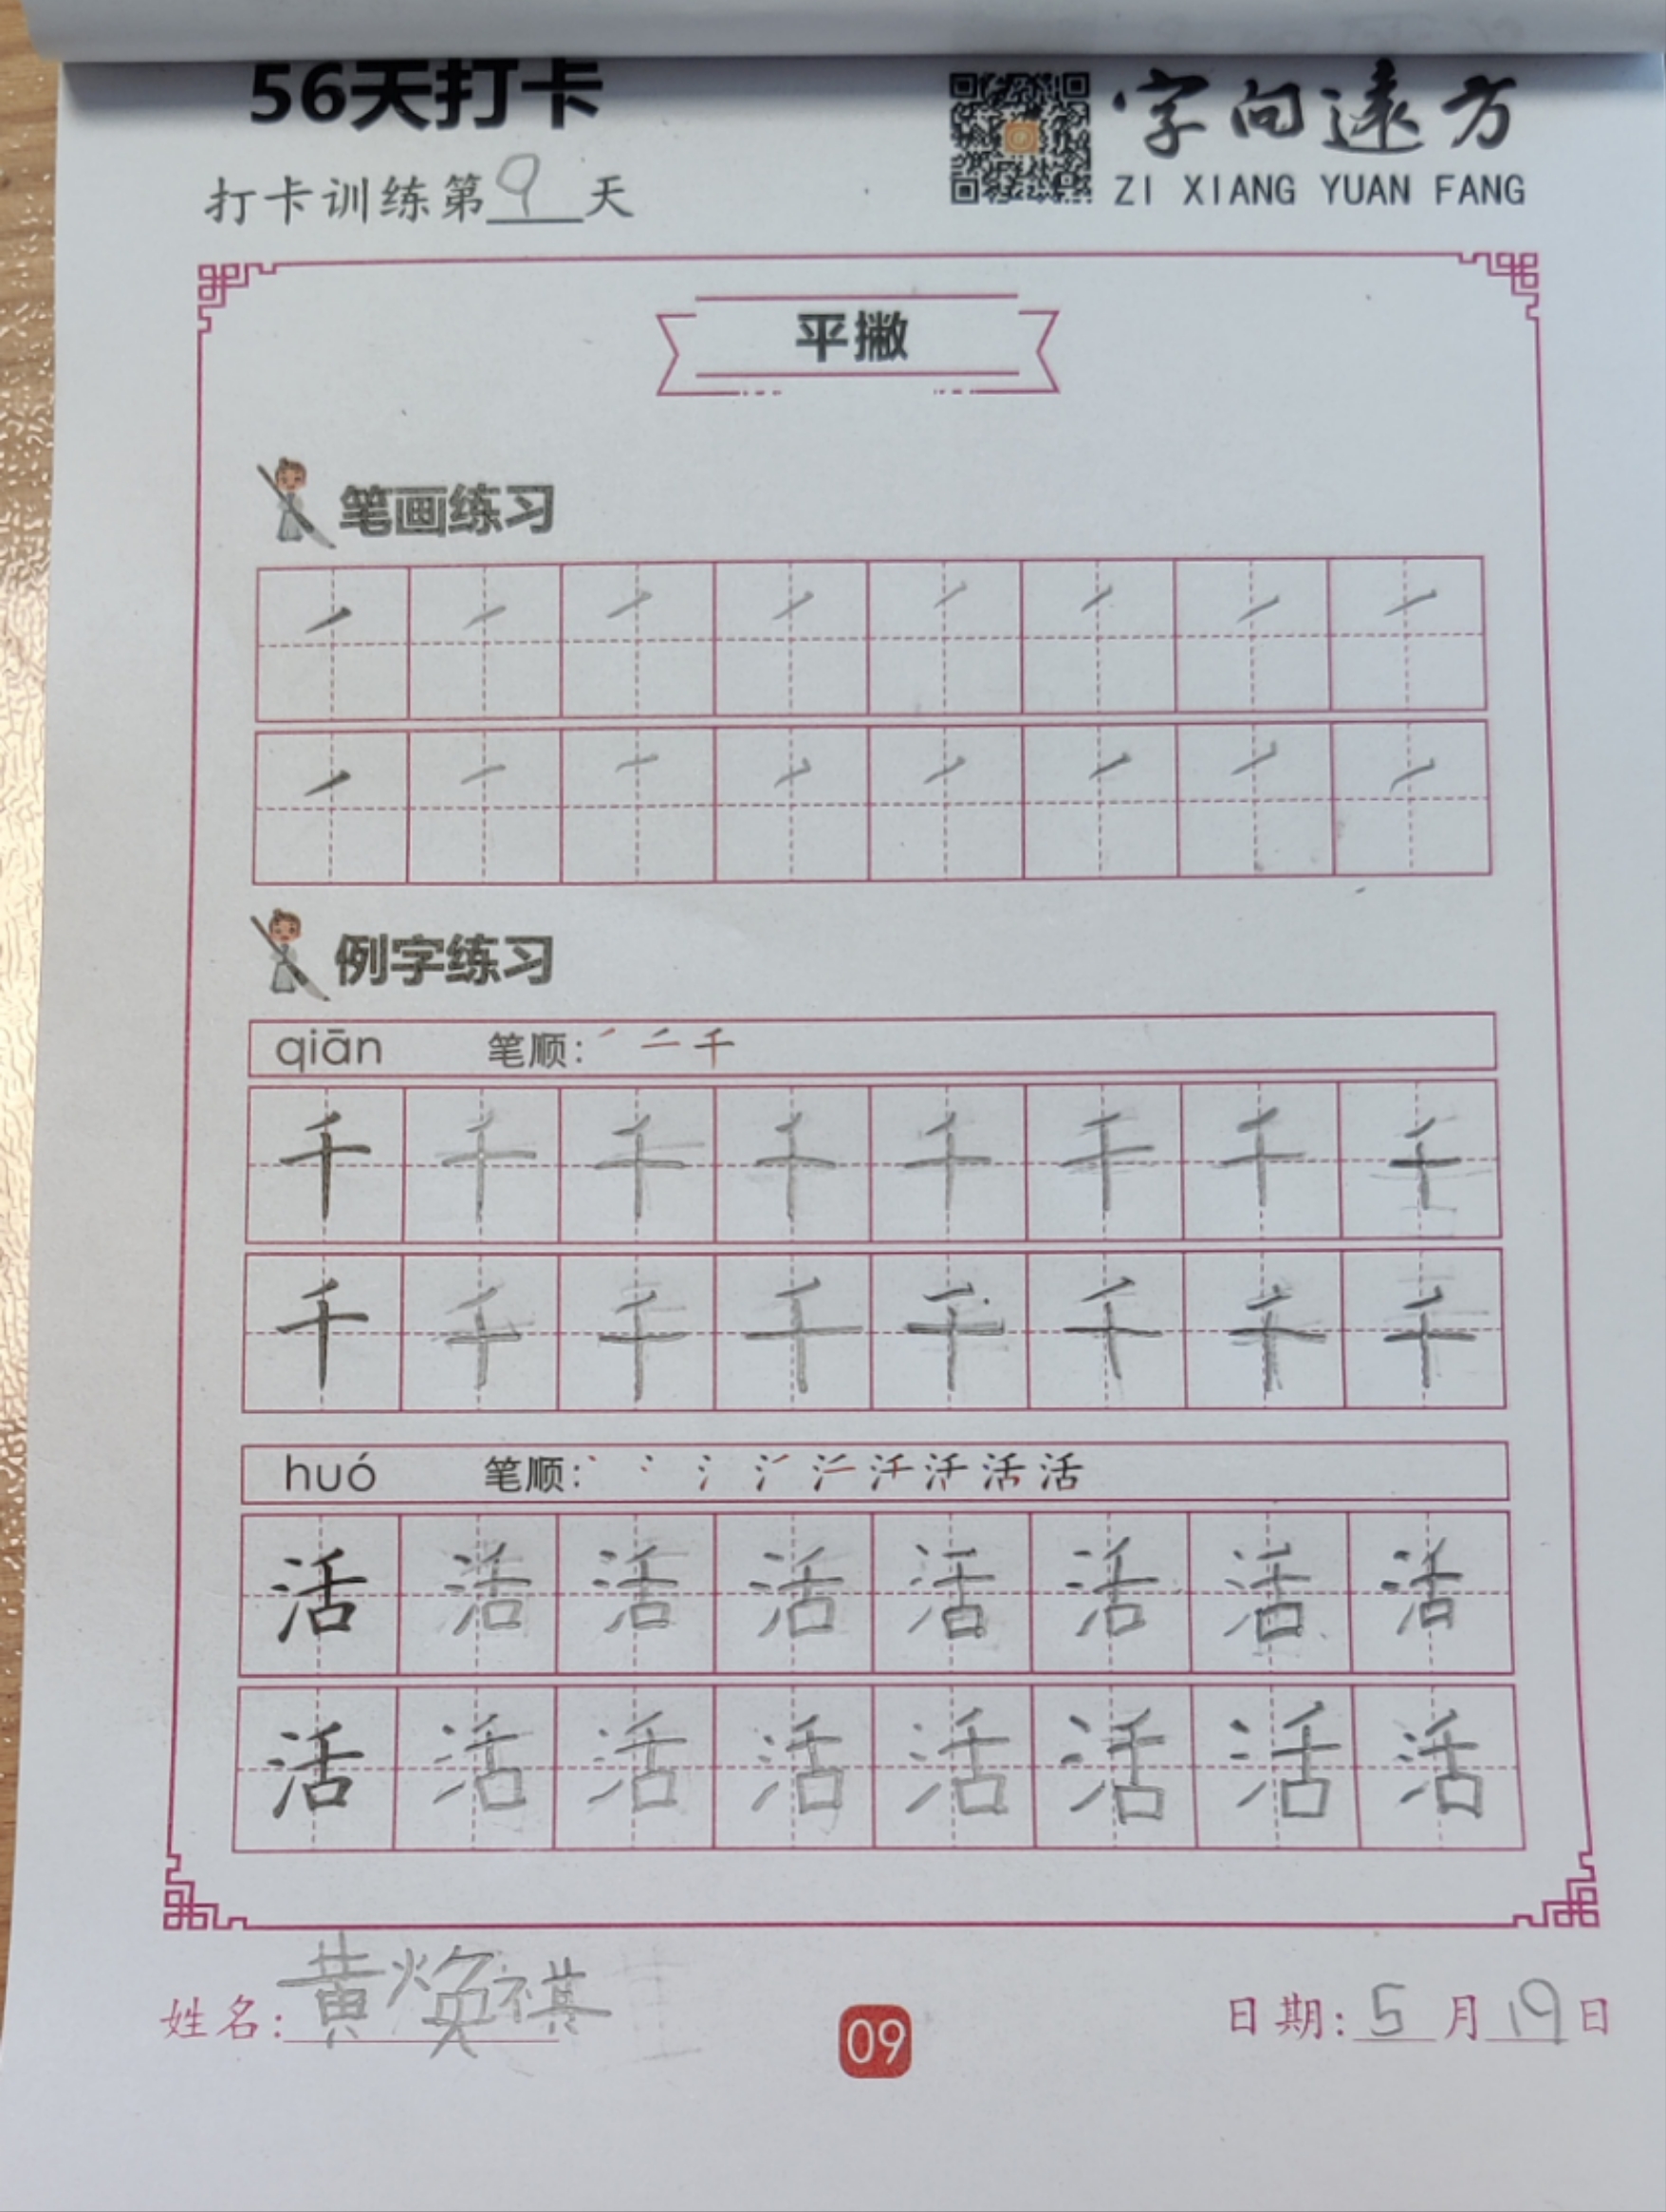 56天打卡
字向遠方
ZI XIANG YUAN FANG
打卡训练第9天
平撇
笔画练习
例字练习
qiān 笔顺: ㇒ 二 千
千 千 千 千 千 千 千 千
千 千 千 千 千 千 千 千
huó 笔顺: 活
活 活 活 活 活 活 活 活
活 活 活 活 活 活 活 活
姓名: 黄焕祺
09
日期: 5月19日